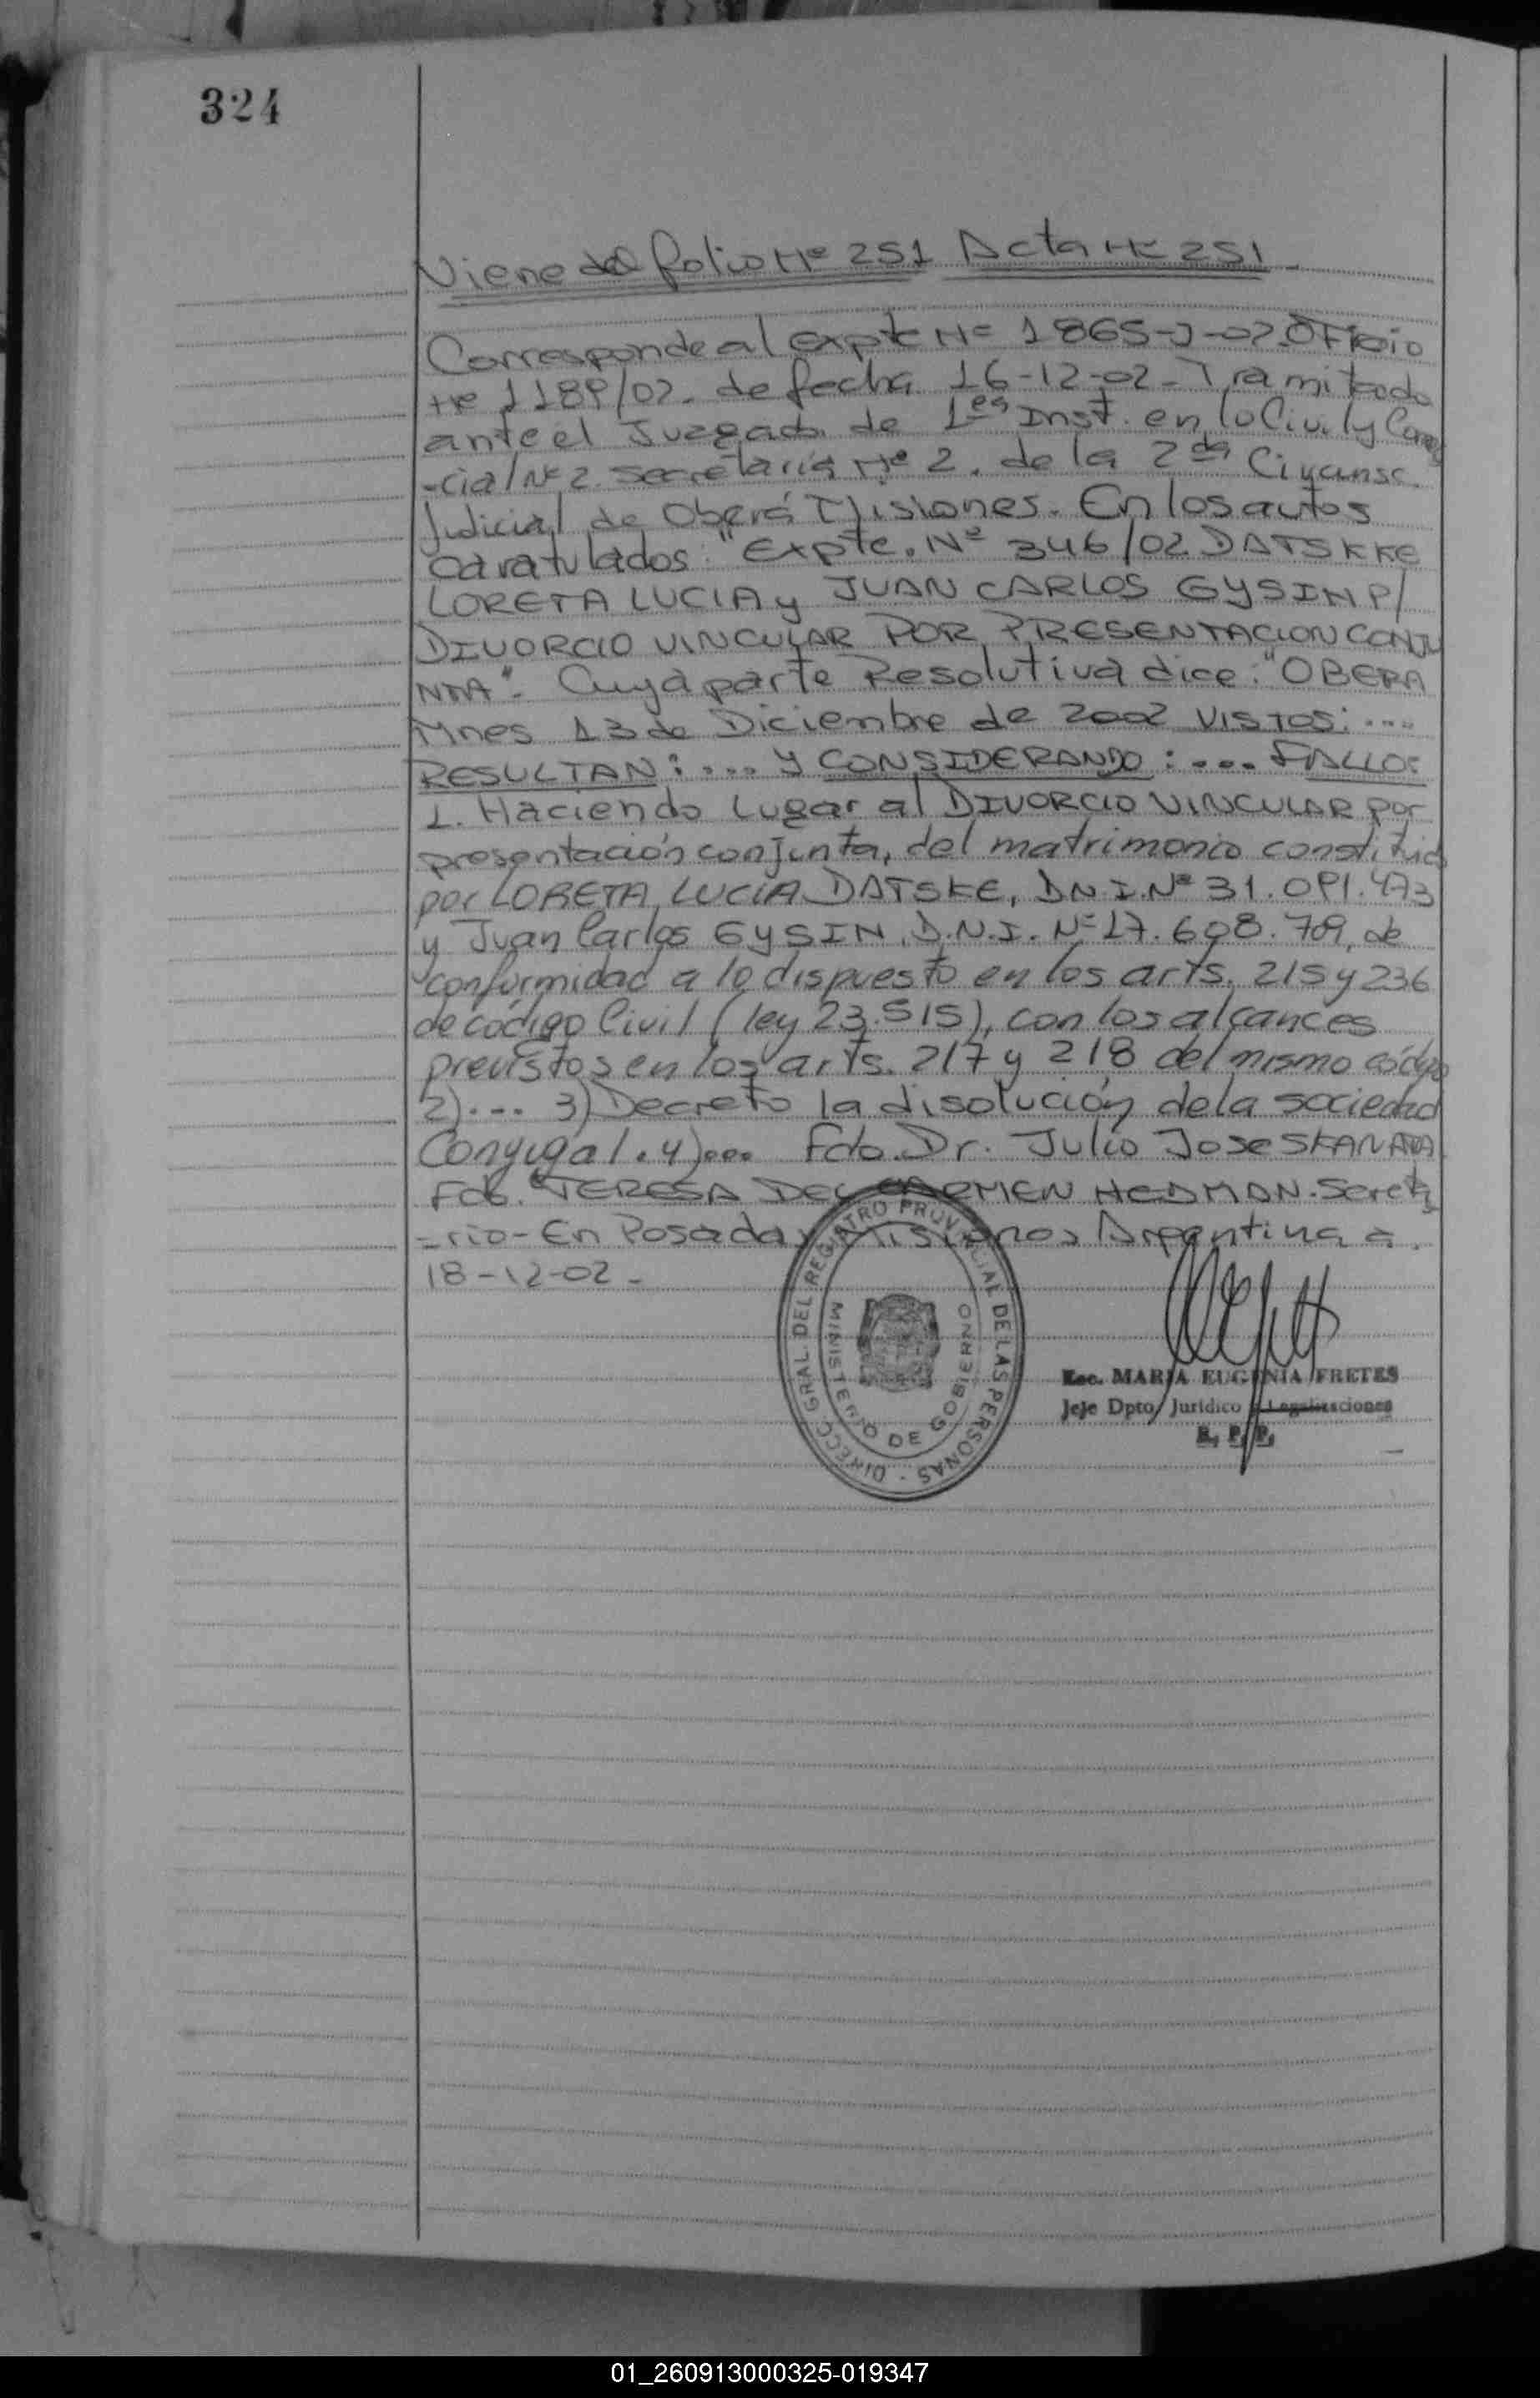 324
Viene del folio Nº 251 Acta Nº 251
Corresponde al expte Nº 1865-J-02. OFICIO
Nº 1189/02. de fecha 16-12-02 - Tramitado
ante el Juzgado de 1era Inst. en lo Civil y Comer
-cial Nº 2. secretaria Nº 2. de la 2da Circunsc.
Judicial de Oberá Misiones. En los autos
caratulados: "Expte. Nº 346/02 DATSKKE
LORETA LUCIA y JUAN CARLOS GYSIN P/
DIVORCIO VINCULAR POR PRESENTACION CONJU
NTA". Cuya parte Resolutiva dice: "OBERA
Mnes 13 de Diciembre de 2002 VISTOS: ....
RESULTAN: .... y CONSIDERANDO: .... FALLO:
1. Haciendo Lugar al DIVORCIO VINCULAR por
presentación conjunta, del matrimonio constituido
por LORETA LUCIA DATSKE, D.N.I. Nº 31.091.473
y Juan Carlos GYSIN, D.N.I. Nº 17.608.709, de
conformidad a lo dispuesto en los arts. 215 y 236
de código Civil (ley 23.515), con los alcances
previstos en los arts. 217 y 218 del mismo código
2) .... 3) Decreto la disolución de la sociedad
Conyugal. 4) .... Fdo. Dr. Julio Jose SKANATA
Fdo. TERESA DEL CARMEN HEDMAN. Secreta
-rio - En Posadas Misiones Argentina a
18-12-02 -
DIRECC. GRAL. DEL REGISTRO PROVINCIAL DE LAS PERSONAS
MINISTERIO DE GOBIERNO
Esc. MARIA EUGENIA FRETES
Jefe Dpto. Jurídico y Legalizaciones
R. P. P.
01_260913000325-019347